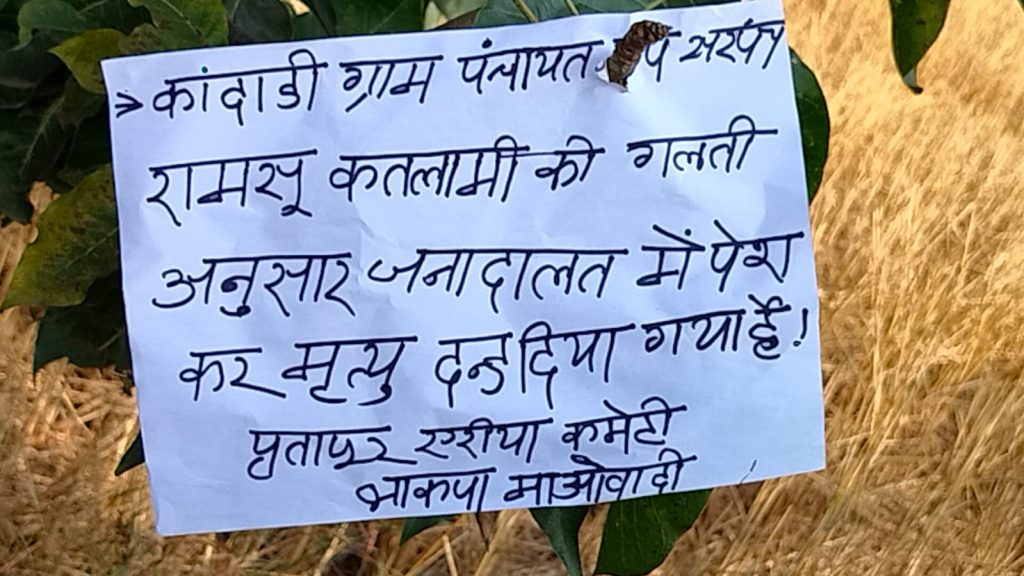 → कांदाडी ग्राम पंचायत प सरपंच
रामसू कतलामी को गलती
अनुसार जनादालत में पेश
कर मृत्यु दन्ड दिया गया है!
प्रतापुर एरीया कमेटी
भाकपा माओवादी